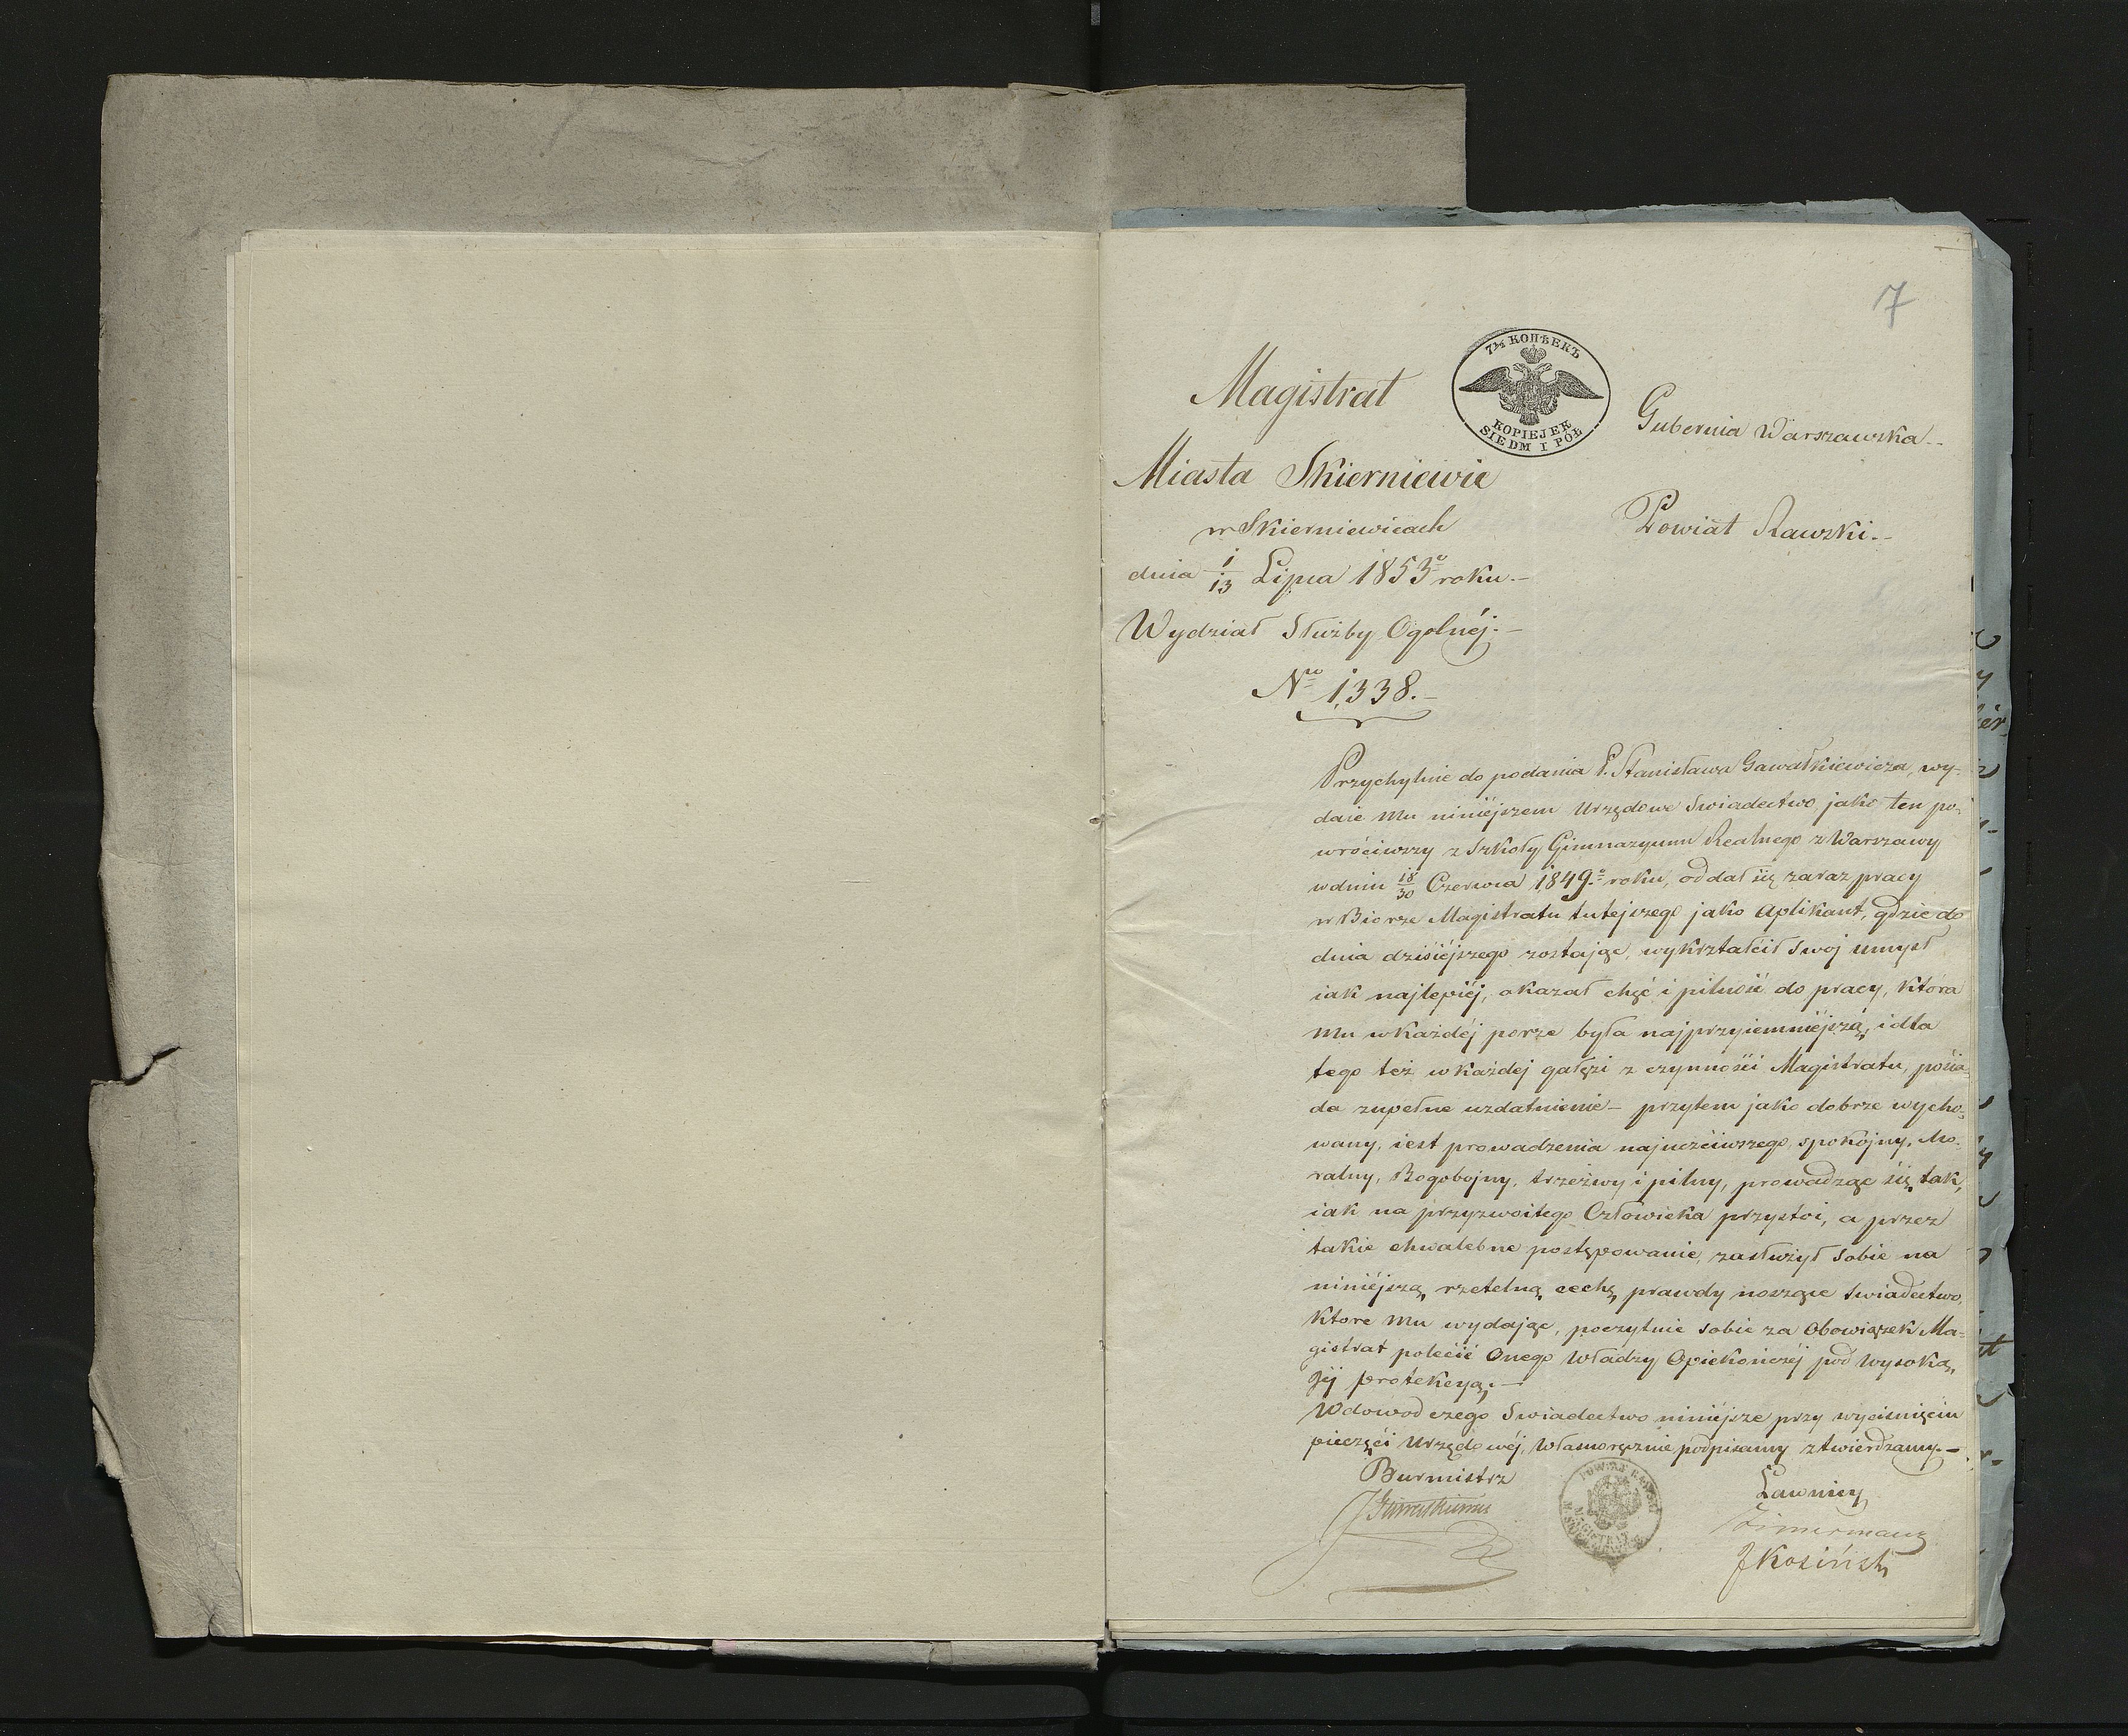 7
7½ КОПѢЕКЪ
KOPIEJEK
SIEDM I PÓŁ
Magistrat
Miasta Skierniewic
w Skierniewicach
dnia 1/13 Lipca 1853º roku.–
Wydział Służby Ogolnéj.–
Nro 1,338.–
Gubernia Warszawska..
Powiat Rawski.–
Przychylnie do podania P. Stanisława Gawałkiewicza, wy-
daie mu niniéjszem Urzędowe Swiadectwo, jako ten po-
wróciwszy z Szkoły Gimnazyum Realnego z Warszawy
w dniu 18/30 Czerwca 1849º roku, oddał się zaraz pracy
w Biorze Magistratu tutejszego jako Aplikant, gdzie do
dnia dzisiéjszego zostając, wykształcił swoj umysł
iak najlepiéj, okazał chęć i pilność do pracy, która
mu w każdéj porze była najprzyiemniéjszą, i dla
tego też w każdéj gałęzi z czynności Magistratu, posia-
da zupełne uzdatnienie – przytem jako dobrze wycho-
wany, iest prowadzenia najuczciwszego, spokojny, Mo-
ralny, Bogobojny, trzeźwy i pilny, prowadząc się tak,
iak na przyzwoitego Człowieka przystoi, a przez
takie chwalebne postępowanie, zasłużył sobie na
niniéjszą rzetelną cechą prawdy noszące swiadectwo,
ktore mu wydając, poczytuie sobie za Obowiązek Ma-
gistrat polecić Onego Władzy Opiekończéj pod wysoką
Jéj protekcyą.–
W dowod czego Swiadectwo niniéjsze przy wyciśnięciu
pieczęci Urzędowéj, Własnoręcznie podpisamy ztwierdzamy.–
Burmistrz
POWIAT RAWSKI
MAGISTRAT
Ławnicy
Zimermann
J Kosiński